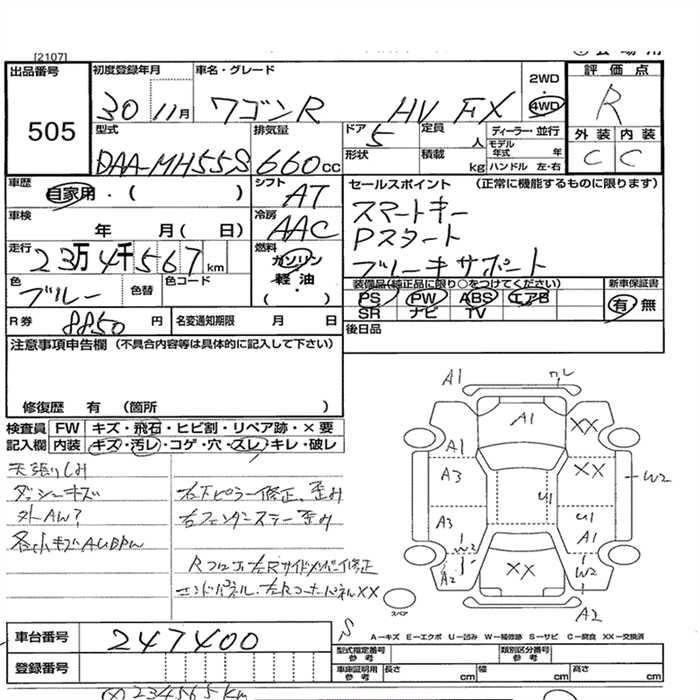 [2107]
出品番号
505
初度登録年月
30 11月
車名・グレード
ワゴンR HV FX
2WD
4WD
評価点
R
外装 内装
C C
型式
DAA-MH55S
排気量
660cc
ドア 5
定員 人
形状
積載 kg
ディーラー・並行
モデル年式 年
ハンドル 左・右
車歴
自家用・( )
シフト
AT
車検
年 月( 日)
冷房
AAC
走行
23万4千567km
燃料
ガソリン・軽油
( ・ )
色
ブルー
色替
色コード
R券 8850円
名変通知期限 月 日
セールスポイント (正常に機能するものに限ります)
スマートキー
Pスタート
ブレーキサポート
装備品(純正品に限り○をつけてください)
PS PW ABS エアB
SR ナビ TV
新車保証書
有 無
後日品
注意事項申告欄(不具合内容等は具体的に記入して下さい)
修復歴 有 (箇所 )
検査員記入欄
FW キズ・飛石・ヒビ割・リペア跡・×要
内装 キズ・汚レ・コゲ・穴・スレ・キレ・破レ
天張りしみ
ダッシーキズ
外AW?
各小キズAUBPW
右下ピラー修正、歪み
右フェンダーステー歪み
Rフロア、左Rサイドメンバー修正
エンドパネル、左Rコーナーパネル××
A1
A1
××
A1
A3
××
W2
A3
U1
U1
A1
W3
A2
××
W2
A2
スペア
S
A－キズ E－エクボ U－凹み W－補修跡 S－サビ C－腐食 XX－交換済
車台番号
247400
登録番号
型式指定番号
参考
類別区分番号
参考
車庫証明用
参考
長さ cm
幅 cm
高さ cm
(×)234565km